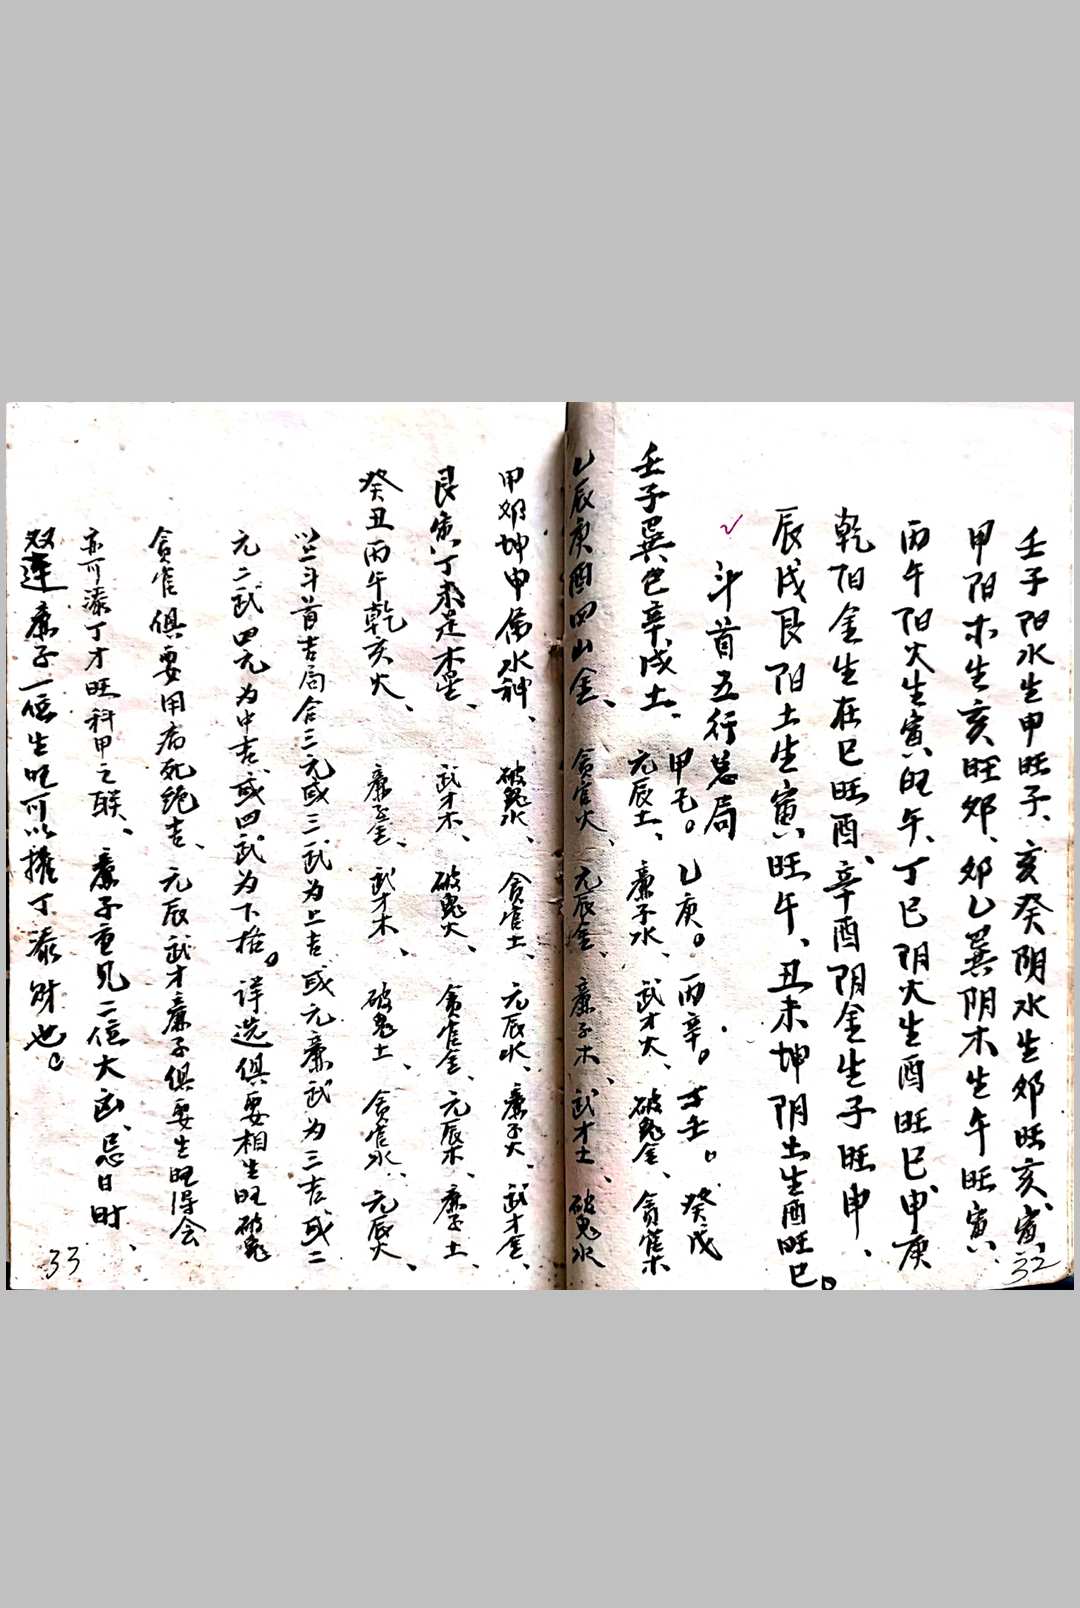 壬子阳水生申旺子、亥癸阴水生郊旺亥、寅、
甲阳木生亥旺郊、郊乙巽阴木生午旺寅、
丙午阳火生寅旺午、丁巳阴火生酉旺巳、申庚
乾阳金生在巳旺酉、辛酉阴金生子旺申、
辰戌艮阳土生寅旺午、丑未坤阴土生酉旺巳。
32
斗首五行总局
甲己。乙庚。丙辛。丁壬。癸戊
壬子巽巳辛戌土、元辰土、廉子水、武才火、破鬼金、貪官木
乙辰庚酉四山金、貪官火、元辰金、廉子木、武才土、破鬼水
甲郊坤申属水神、破鬼水、貪官土、元辰水、廉子火、武才金、
艮寅丁未是木星、武才木、破鬼火、貪官金、元辰木、廉子土、
癸丑丙午乾亥火、廉子金、武才木、破鬼土、貪官水、元辰火、
以上斗首吉局合三元或三武为上吉或元廉武为三吉或二
元二武四元为中吉或四武为下格。详选俱要相生旺破鬼
貪官俱要用病死绝吉、元辰武才廉子俱要生旺得会
亦可添丁才旺科甲之联、廉子重见二位大凶、忌日时、
双連廉子一位生旺可以擔丁添财也。
33